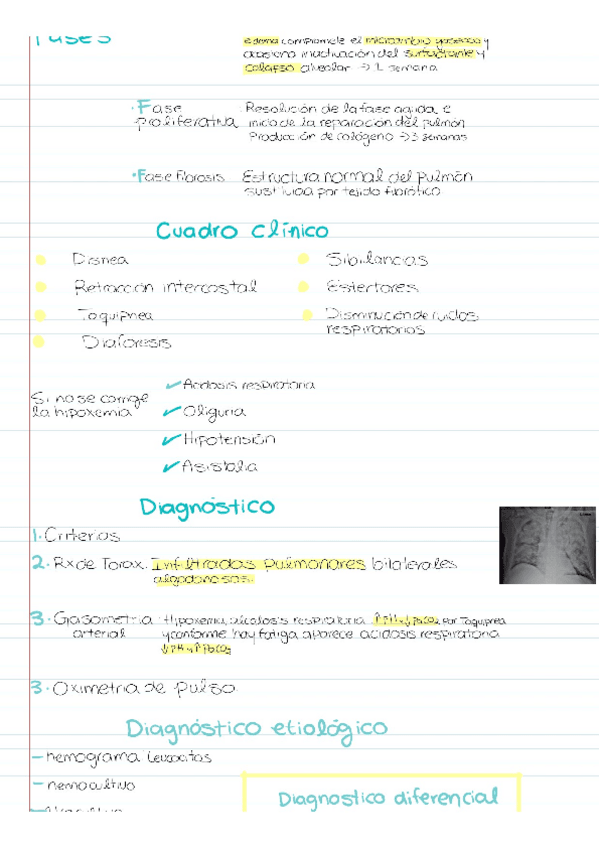 Fases
edema compromete el intercambio gaseoso y
ocasiona inactivación del surfactante y
colapso alveolar → 1 semana
· Fase proliferativa
Resolución de la fase aguda e
inicio de la reparación del pulmón
Producción de colágeno → 3 semanas
· Fase Fibrosis
Estructura normal del Pulmón
sustituida por tejido fibrótico
Cuadro clínico
Disnea
Retracción intercostal
Taquipnea
Diaforesis
Sibilancias
Estertores
Disminución de ruidos
respiratorios
Si no se corrige
la hipoxemia
✓ Acidosis respiratoria
✓ Oliguria
✓ Hipotensión
✓ Asistolia
Diagnóstico
1. Criterios
2. Rx de Torax. Infiltrados pulmonares bilaterales
algodonosos.
3. Gasometria arterial
: Hipoxemia, alcalosis respiratoria ↑PH y ↓PaCO2 por Taquipnea
y conforme hay fatiga aparece acidosis respiratoria
↓PH y ↑PaCO2
3. Oximetria de pulso
Diagnóstico etiológico
- hemograma: Leucocitos
- hemocultivo
Diagnostico diferencial